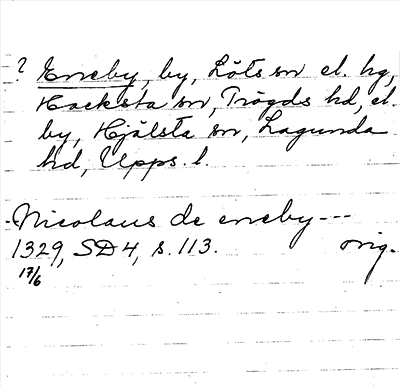 ? Enneby, by, Löts sn el. hg,
Hacksta sn, Trögds hd, el.
by, Hjälsta sn, Lagunda
hd, Upps. l.
Nicolaus de eneby ---
1329, SD 4, s. 113. orig.
17/6